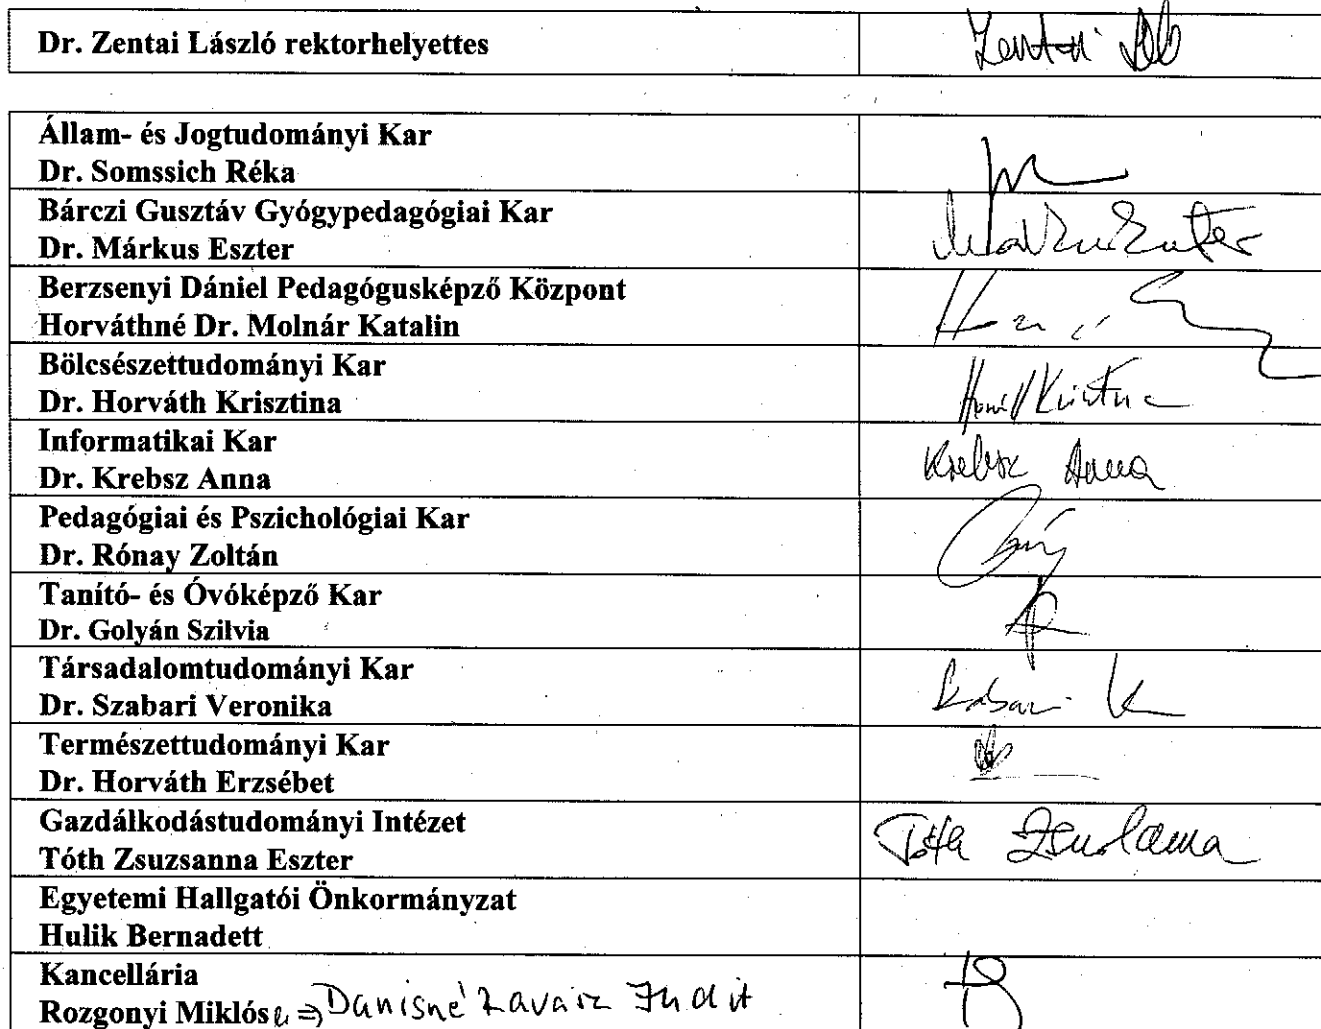 Dr. Zentai László rektorhelyettes
Zentai
Állam- és Jogtudományi Kar
Dr. Somssich Réka
Bárczi Gusztáv Gyógypedagógiai Kar
Dr. Márkus Eszter
Berzsenyi Dániel Pedagógusképző Központ
Horváthné Dr. Molnár Katalin
Bölcsészettudományi Kar
Dr. Horváth Krisztina
Informatikai Kar
Dr. Krebsz Anna
Krebsz Anna
Pedagógiai és Pszichológiai Kar
Dr. Rónay Zoltán
Tanító- és Óvóképző Kar
Dr. Golyán Szilvia
Társadalomtudományi Kar
Dr. Szabari Veronika
Természettudományi Kar
Dr. Horváth Erzsébet
Gazdálkodástudományi Intézet
Tóth Zsuzsanna Eszter
Tóth Zsuzsanna
Egyetemi Hallgatói Önkormányzat
Hulik Bernadett
Kancellária
Rozgonyi Miklós ⇒ Danisné Judit